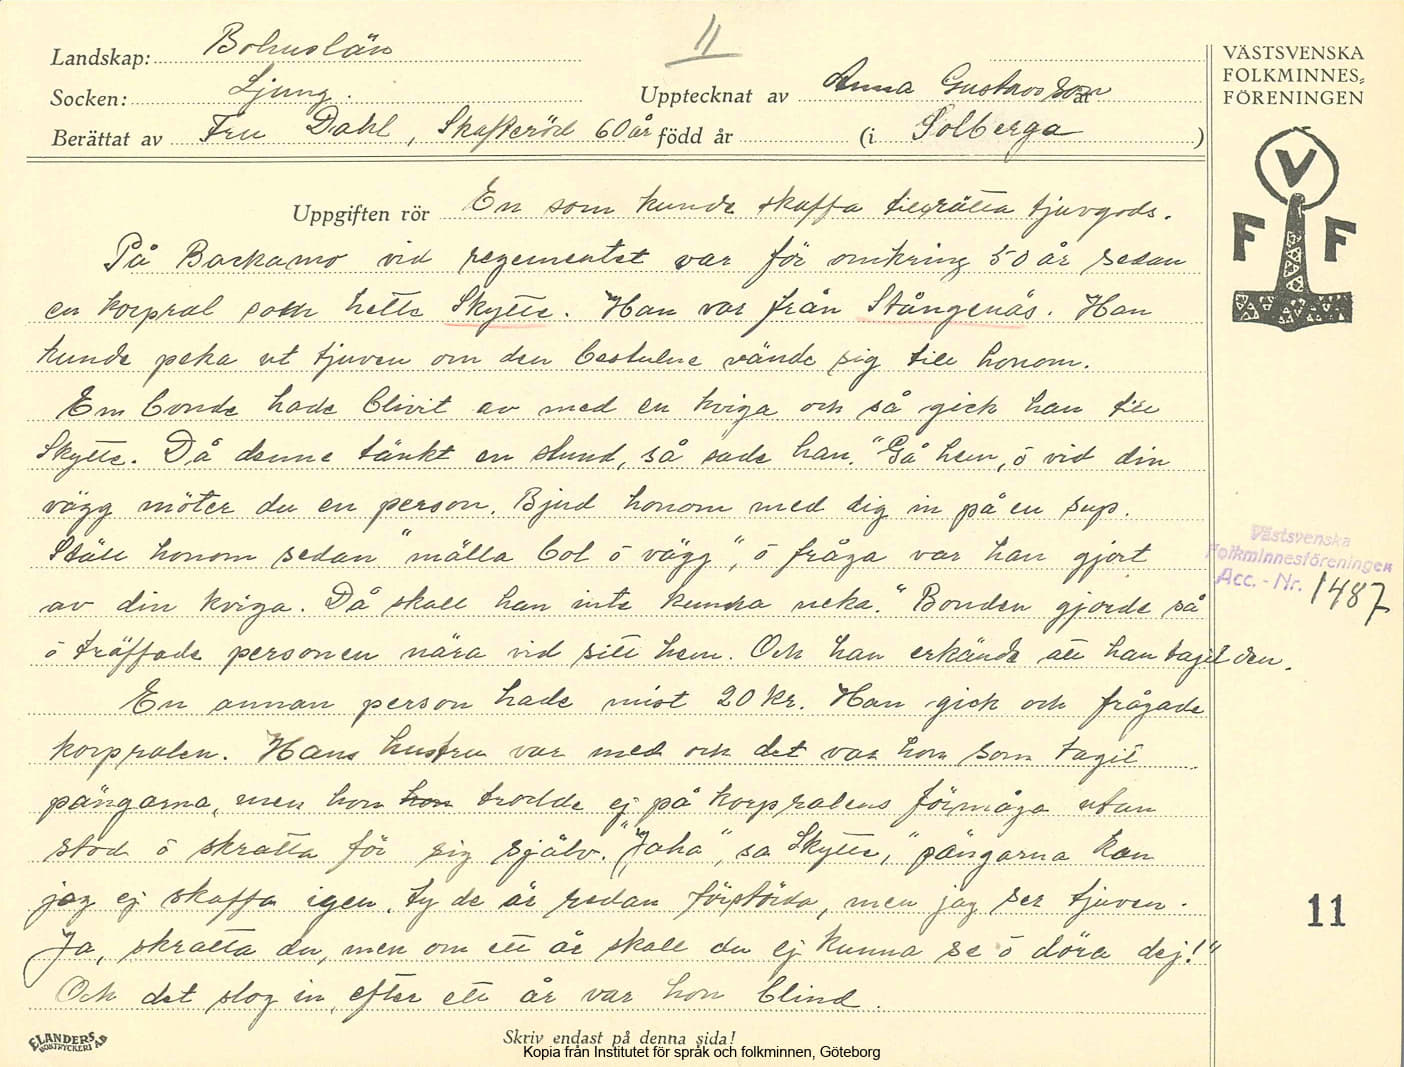 11
Landskap: Bohuslän
Socken: Ljung.
Upptecknat av Anna Gustavsson år
Berättat av Fru Dahl, Skafteröd 60 år född år (i Solberga)
VÄSTSVENSKA
FOLKMINNES-
FÖRENINGEN
V
F F
Uppgiften rör En som kunde skaffa tillrätta tjuvgods.
På Backamo vid regementet var för omkring 50 år sedan
en korpral som hette Skytte. Han var från Stångenäs. Han
kunde peka ut tjuven om den bestulne vände sig till honom.
En bonde hade blivit av med en kviga och så gick han till
Skytte. Då denne tänkt en stund, så sade han. "Gå hem, ô vid din
vägg möter du en person. Bjud honom med dig in på en sup.
Ställ honom sedan "mälla bol ô vägg", ô fråga var han gjort
av din kviga. Då skall han inte kunna neka." Bonden gjorde så
ô träffade personen nära vid sitt hem. Och han erkände att han tagit den.
En annan person hade mist 20 kr. Han gick och frågade
korpralen. Hans hustru var med och det var hon som tagit
pängarna, men hon hon trodde ej på korpralens förmåga utan
stod ô skratta för sig själv. "Jaha", sa Skytte, "pängarna kan
jag ej skaffa igen, ty de är redan förstörda, men jag ser tjuven.
Ja, skratta du, men om ett år skall du ej kunna se ô döra dej!"
Och det slog in, efter ett år var hon blind.
Västsvenska
Folkminnesföreningen
Acc. - Nr. 1487
11
ELANDERS
BOKTRYCKERI AB
Skriv endast på denna sida!
Kopia från Institutet för språk och folkminnen, Göteborg